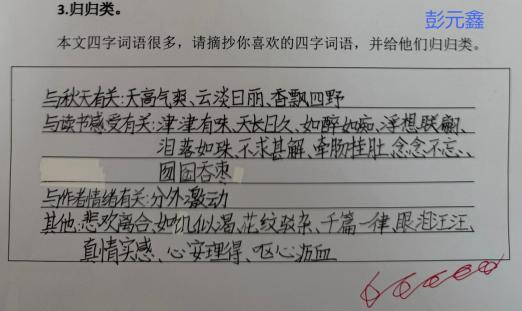 3.归归类。
彭元鑫
本文四字词语很多，请摘抄你喜欢的四字词语，并给他们归归类。
与秋天有关：天高气爽、云淡日丽、香飘四野
与读书感受有关：津津有味、天长日久、如醉如痴、浮想联翩、
泪落如珠、不求甚解、牵肠挂肚、念念不忘、
囫囵吞枣
与作者情绪有关：分外激动
其他：悲欢离合、如饥似渴、花纹驳杂、千篇一律、眼泪汪汪、
真情实感、心安理得、呕心沥血